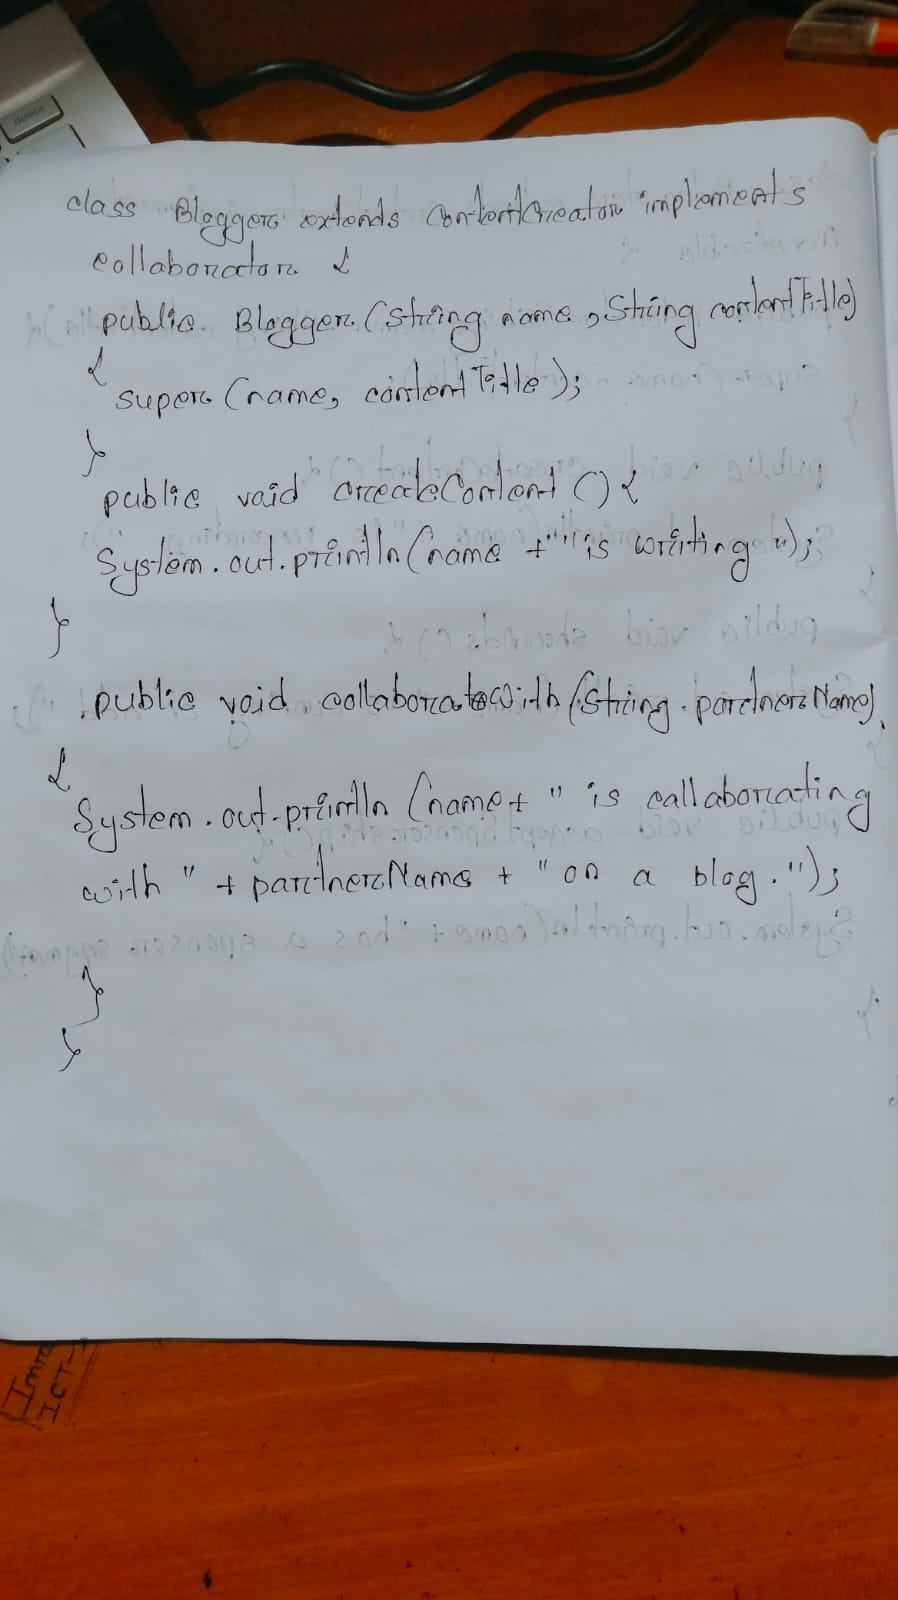 delete
class Blogger extends ContentCreator implements
collaborator {
public Blogger (String name, String contentTitle)
{
super (name, contentTitle);
}
public void createContent () {
System.out.println (name +" "is writing ");
}
public void collaborateWith (String partnerName)
{
System.out.println (name + " is collaborating
with " + partnerName + " on a blog.");
}
}
ICT-